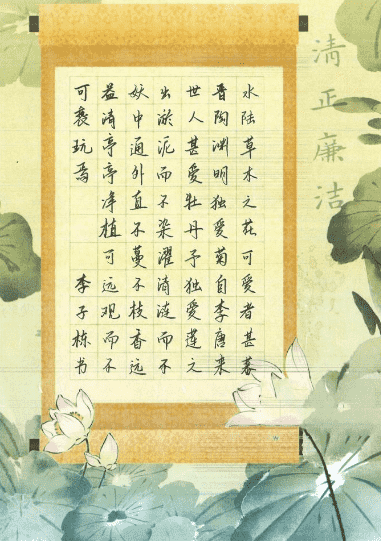 清正廉洁
水陆草木之花可爱者甚蕃
晋陶渊明独爱菊自李唐来
世人甚爱牡丹予独爱莲之
出淤泥而不染濯清涟而不
妖中通外直不蔓不枝香远
益清亭亭净植可远观而不
可亵玩焉 李子栋书